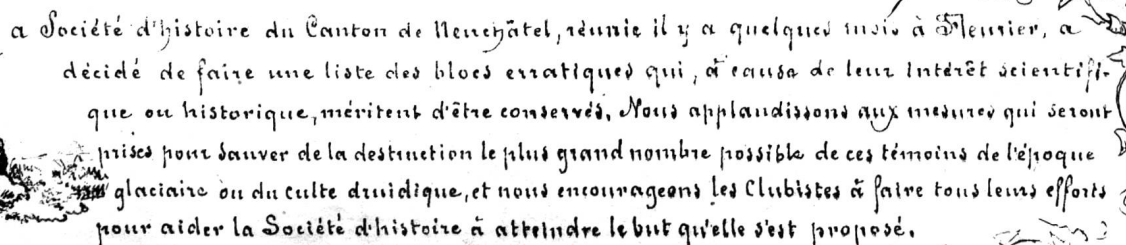 a Société d'histoire du Canton de Neuchâtel, réunie il y a quelques mois à Fleurier, a
décidé de faire une liste des blocs erratiques qui, à cause de leur intérêt scientifi-
que ou historique, méritent d'être conservés. Nous applaudissons aux mesures qui seront
prises pour sauver de la destruction le plus grand nombre possible de ces témoins de l'époque
glaciaire ou du culte druidique, et nous encourageons les Clubistes à faire tous leurs efforts
pour aider la Société d'histoire à atteindre le but qu'elle s'est proposé.